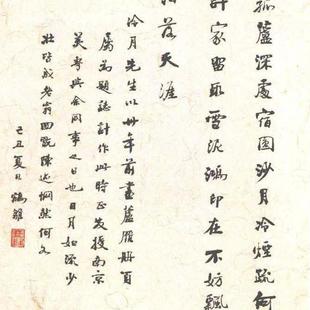 孤蘆深處宿圓沙月冷煙疏何
計家留取雪泥鴻印在不妨飄
泊落天涯
冷月先生以卅年前畫蘆雁冊頁
屬為題誌計作此時正發援南京
美專與余同事之日也日月如流少
壯時成老翁回既陳述惘然何如
己丑夏日